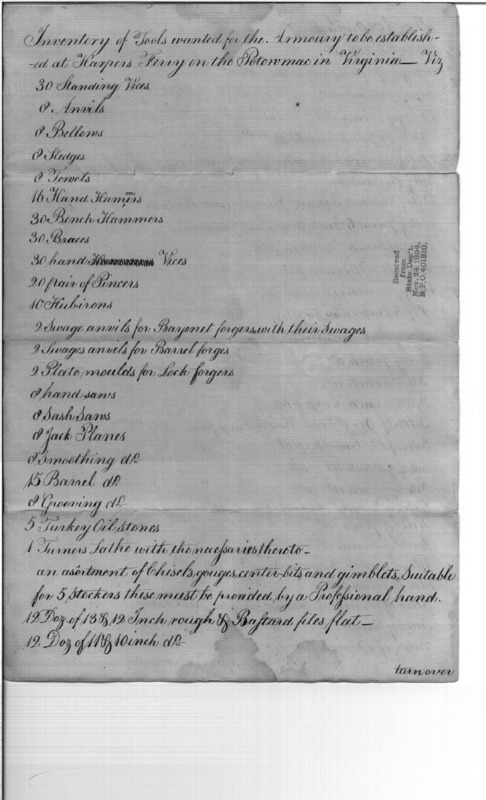 Inventory of Tools wanted for the Armoury to be establish-
-ed at Harpers Ferry on the Potowmac in Virginia — Viz
30 Standing Vices
8 Anvils
8 Bellows
8 Sledges
8 Tewels
16 Hand Hamers
30 Bench Hammers
30 Braces
30 hand Vices
20 pair of Pincers
10 Hubirons
2 Swage anvils for Bayonet forgers, with their Swages
2 Swages anvils for Barrel forges
2 Plate moulds for Lock forgers
8 hand saws
8 Sash Saws
8 Jack Planes
8 Smoothing do
15 Barrel do
8 Grooving do
5 Turkey Oil Stones
1 Turners Lathe with the necessaries thereto —
an asortment of Chisels, gouges, center-bits and gimblets, Suitable
for 5 Stockers these must be provided by a Professional hand.
12 Doz of 13 & 12 Inch rough & Bastard files flat —
12 Doz of 11 & 10 inch do
turn over
Received
from
State Dep't.
Nov. 24, 1894,
B.P.O. 401810.